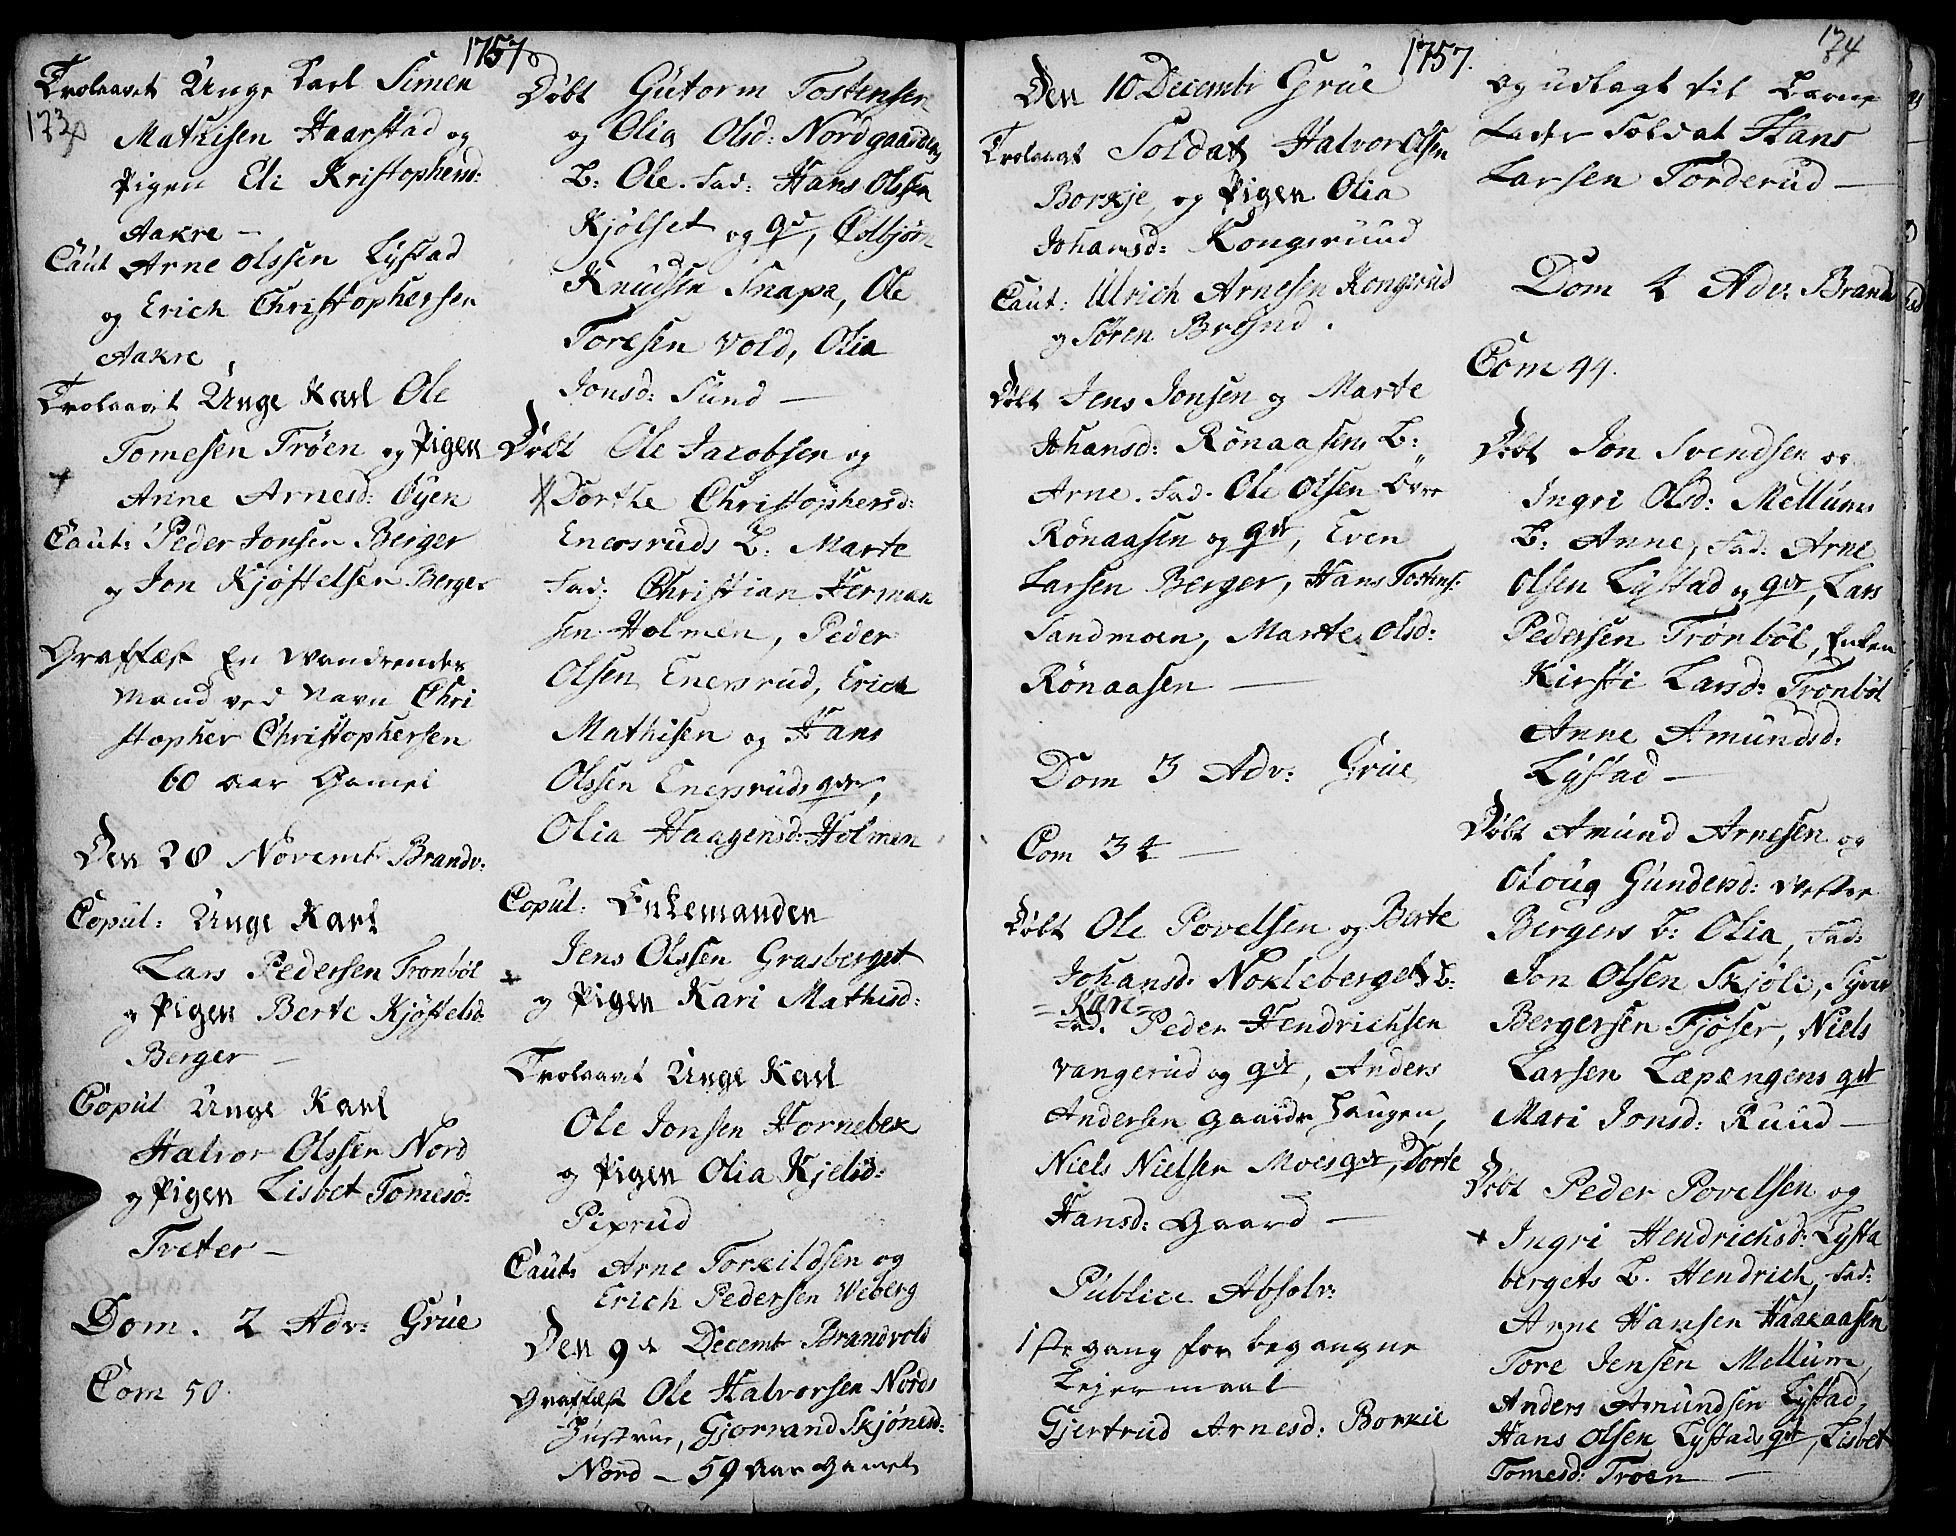 1757
173
Trolovet Unge Karl Simen
Mathisen Haarstad og
Pigen Eli Kristophersd:
Aakre –
Caut Arne Olssen Lystad
og Erich Christophersen
Aakre,
Trolovet Unge Karl Ole
Tomesen Trøen og Pigen
+
Anne Arnesd: Øyen
Caut: Peder Jonsen Berger
og Jon Kjøstelsen Berger
Graffæst En Wandrendes
Mand ved Navn Chri
stopher Christophersen
60 aar Gamel
Den 28 Novemb Brandv:
Copul: Unge Karl
Lars Pedersen Tronbøl
og Pigen Berte Kjøstelsd
Berger –
Copul Unge Karl
Halvor Olssen Nord
og Pigen Lisbet Tomesd:
Tveter –
Dom. 2 Adv: Grue
Com 50.
Døbt Gutorm Tostensen
og Olia Olsd: Nordgaardens
B: Ole. Fad: Hans Olssen
Kjølset og qv, Estbjørn
Knudsen Snapa, Ole
Toresen Vold, Olia
Jonsd: Sund –
Døbt Ole Jacobsen og
Dorthe Christophersd:
Enersruds B: Marte
Fad: Christian Herman
sen Holmen, Peder
Olsen Enersrud, Erich
Mathisen og Hans
Olssen Enersruds qvr,
Olia Haagensd: Holmen
Copul: Enkemanden
Jens Olssen Grasberget
+
og Pigen Kari Mathisd:
Trolovet Unge Karl
Ole Jonsen Hornebek
og Pigen Olia Kjelsd:
Piprud
Caut: Arne Torkildsen og
Erich Pedersen Weberg
Den 9de Decemb Brandvold
Graffæst Ole Halvorsen Nords
Hustrue, Gjorrand Skjønesd:
Nord – 59 Aar Gamel
1757.
174
Den 10 Decembr Grue
Trolovet Soldat Halvor Olsen
Borkje, og Pigen Olia
Johansd: Kongsruud
Caut: Ulrich Arnesen Kongsrud
og Søren Bresnd.
Døbt Jens Jonsen og Marte
Johansd: Rønaasens B:
Arne. Fad. Ole Olsen Over
Rønaasen og qvr, Even
Larsen Berger, Hans Tostens:
Sandmoen, Marte Olsd:
Rønaasen –
Dom 3 Adv: Grue
Com 34 –
Døbt Ole Povelsen og Berte
Johansd: Nokleberget B:
– Kare –
Fad. Peder Hendrichsen
Vangerud og qvr, Anders
Andersen Gaarder Haugen,
Niels Nielsen Moes qvr, Dorte
Hansd: Gaard –
Publice Absolv:
1ste gang for begangne
Lejermaal
Gjertrud Arnesd: Borkie
og udlagt til Barne
Fader Soldat Hans
Larsen Torderud –
Dom 4 Adv: Brandv
Com 44.
Døbt Jon Svendsen og
Ingri Olsd: Mellums
B: Anne, Fad: Arne
Olsen Lystad og qvr, Lars
Pedersen Trønbøl, Enken
Kirsti Larsd: Tronbøl
Anne Amundsd:
Lystad –
Døbt Amund Arnesen og
Oloug Gundersd: Vester
Bergers B: Olia, Fad:
Jon Olsen Skjøli, Syver
Bergersen Fjøser, Niels
Larsen Læpængens qvr
Mari Jonsd: Ruud –
Døbt Peder Povelsen og
+
Ingri Hendrichsd: Lysta
bergets B. Hendrich, Fad:
Arne Hansen Haakaasen
Tore Jensen Mellum,
Anders Amundsen Lystad,
Hans Olsen Lystads qvr, Lisbet
Tomesd: Troen –